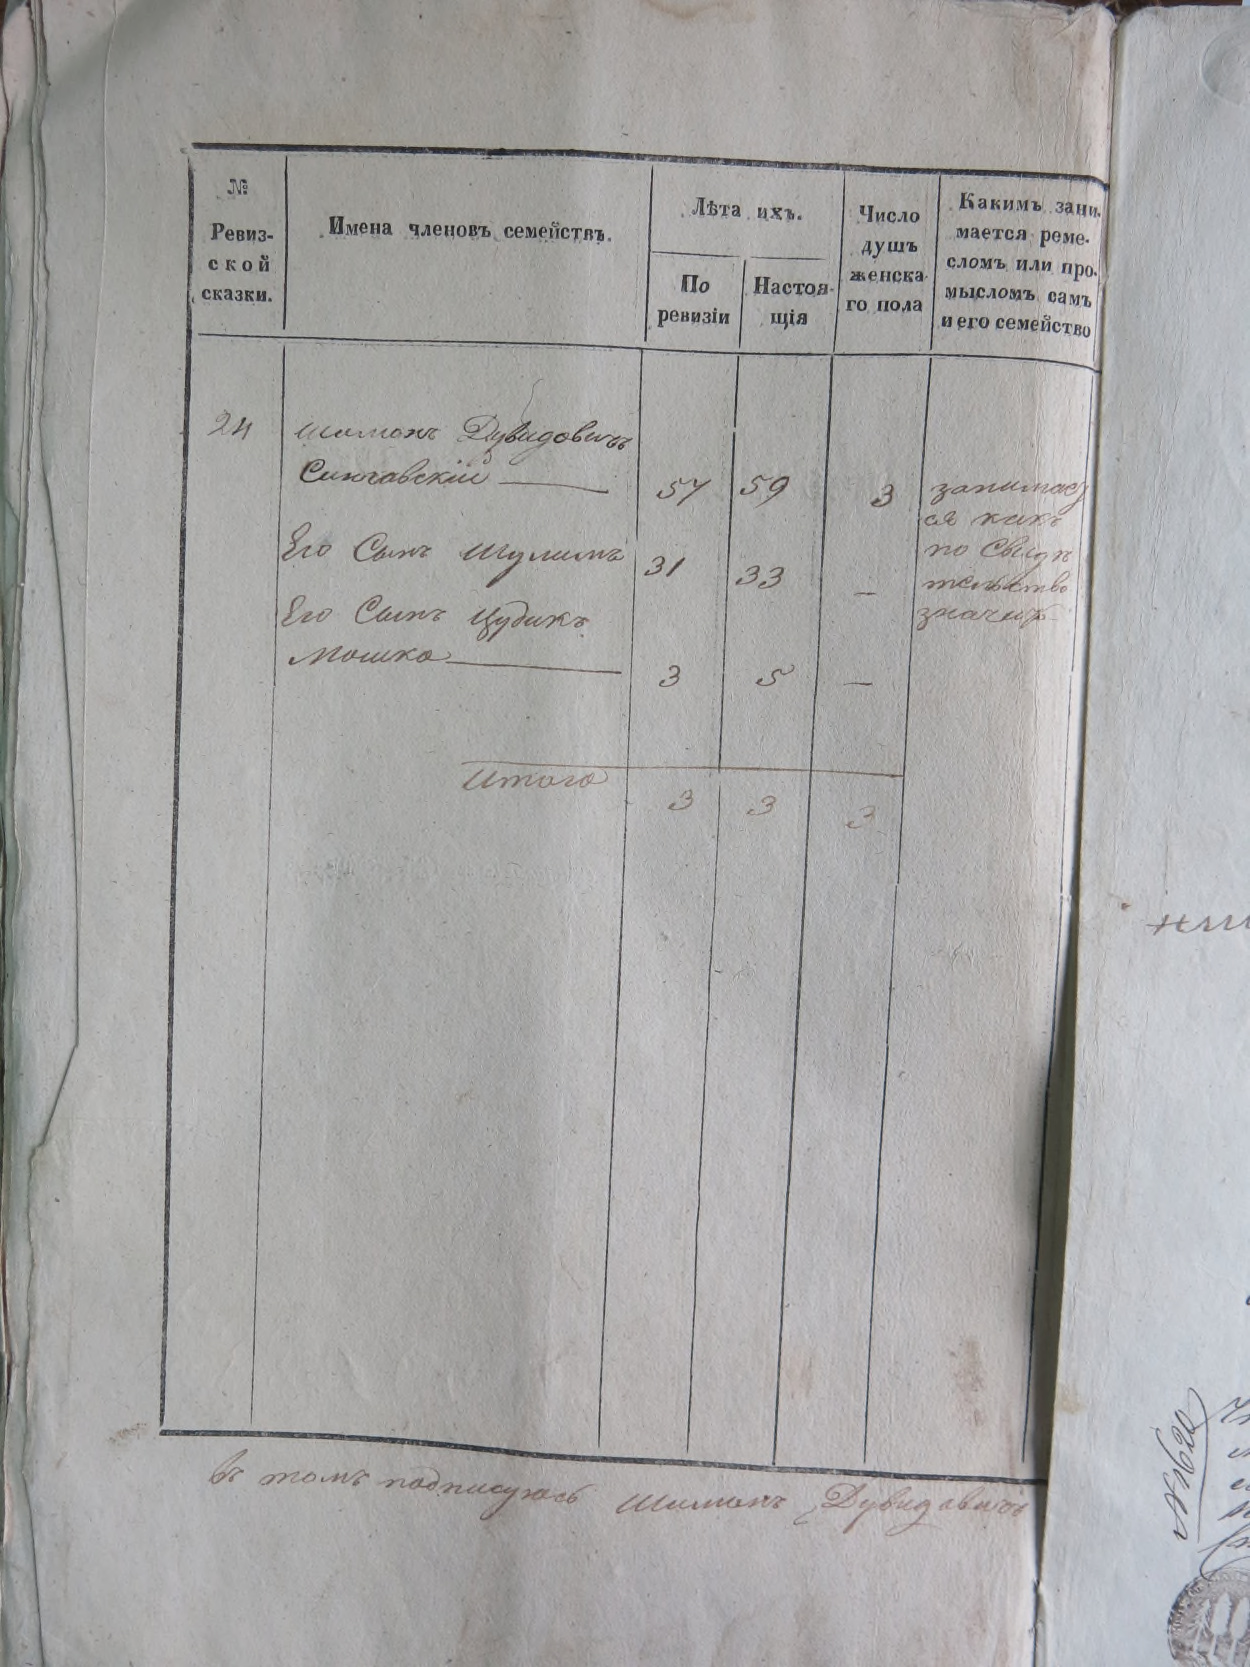 №
Ревиз-
ской
сказки.
Имена членовъ семействъ.
Лѣта ихъ.
По
ревизіи
Настоя-
щія
Число
душъ
женска-
го пола
Какимъ зани-
мается реме-
сломъ или про-
мысломъ самъ
и его семейство
24
Шимонъ Дувидовичъ
57
59
3
занимает
ся какъ
по свидѣ
тельство
значит
Его Сынъ Шулимъ
31
33
—
Его Сынъ Цудикъ
Мошко
3
5
—
Итого
3
3
3
въ томъ подписуюсь Шимонъ Дувидовичъ
№ 1620